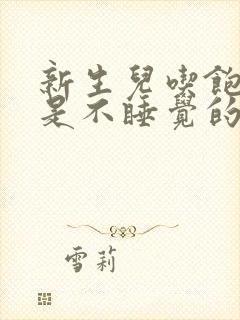 新生兒喫飽
是不睡覺的
雪莉